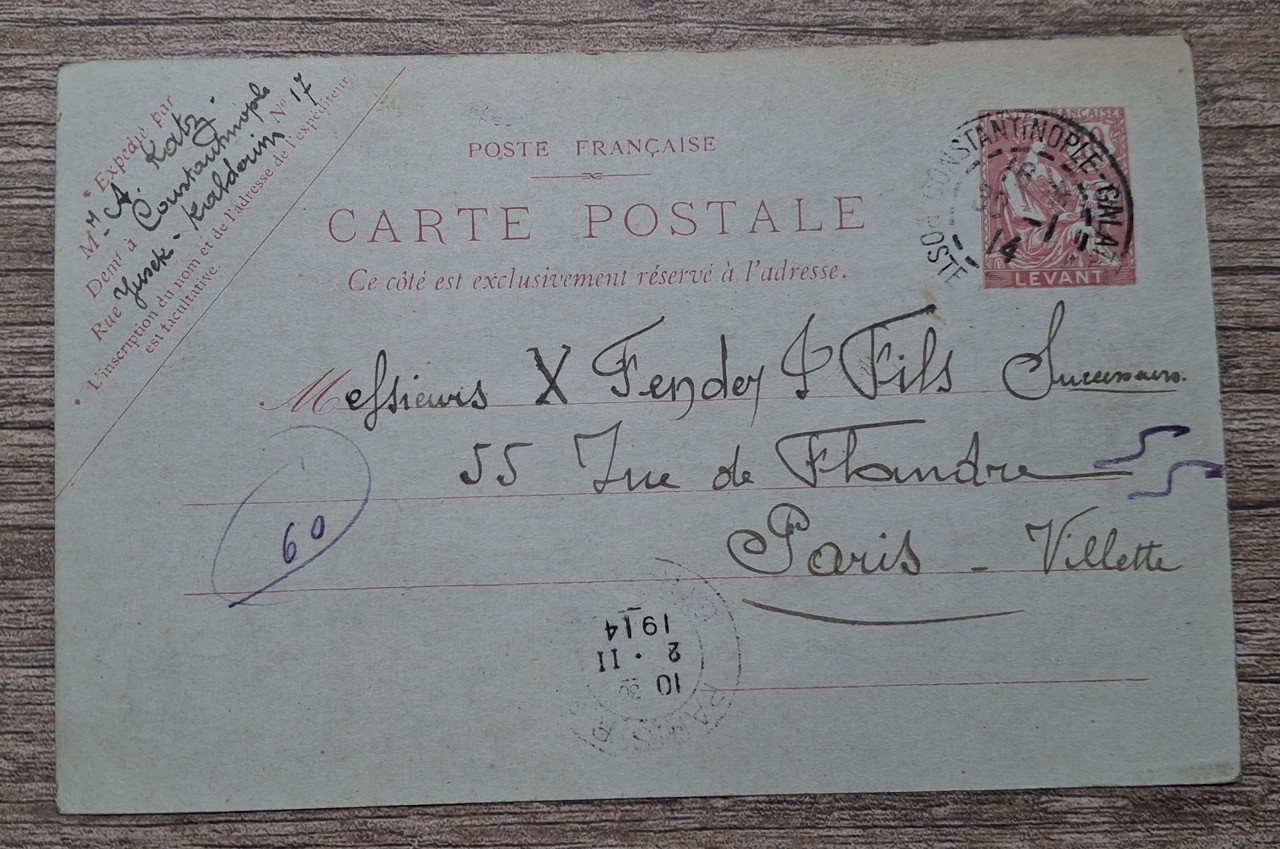 * Expédié par
Mr A. Katz.
Demt à Constantinople
Rue Yusek-Kalderim No 17
* L'inscription du nom et de l'adresse de l'expéditeur
est facultative.
POSTE FRANÇAISE
CARTE POSTALE
Ce côté est exclusivement réservé à l'adresse.
POSTE FRANÇAISE
LEVANT
CONSTANTINOPLE-GALATA
14
POSTE
Messieurs X Fender & Fils Successeurs.
55 Rue de Flandre
Paris - Villette
60
PARIS
10 30
2 · II
1914